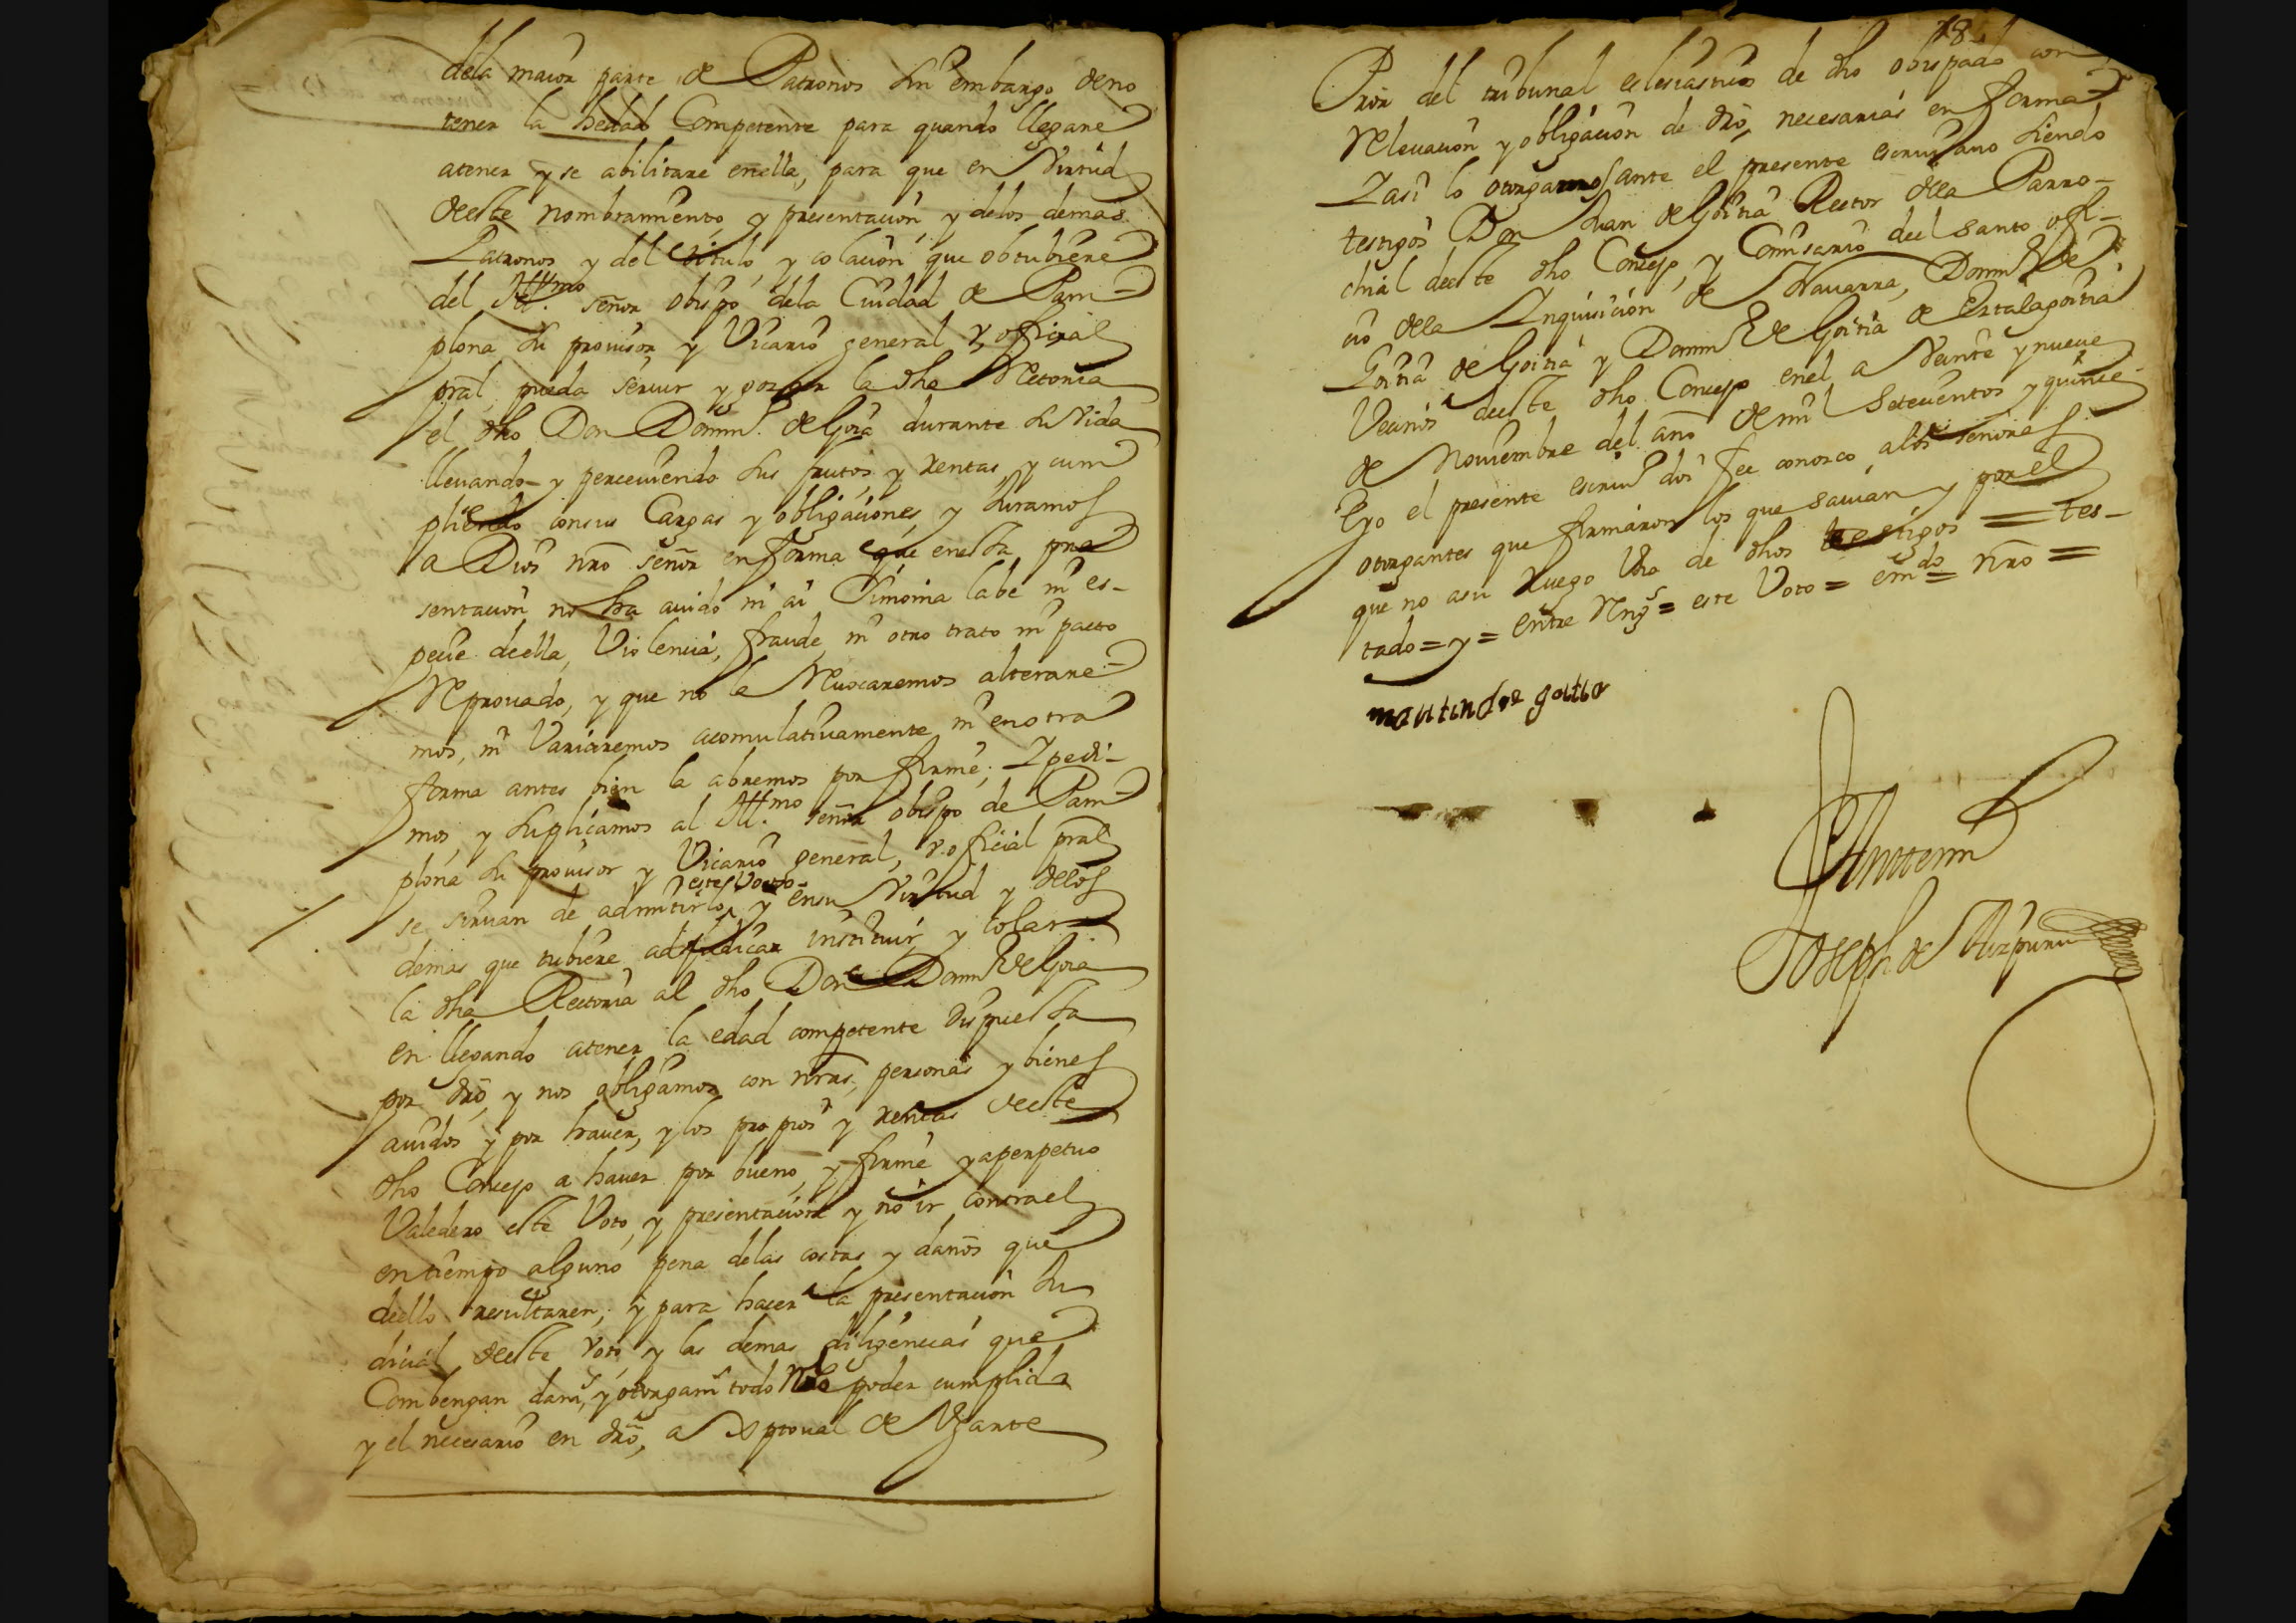 dela maior parte de Patronos sin embargo deno
tener la hedad Competente para quando llegare
atener y se abilitare enella, para que en Virtud
deeste nombramiento y presentación y delos demas
Patronos y del titulo y colación que obtubiere
del Illmo. señor obispo dela Ciudad de Pam=
plona su provisor y Vicario general y oficial
pral pueda servir y gozar la dha Retoria
el dho Don Domin. de Goia durante su Vida
llevando y perceviendo sus frutos y rentas y cum
pliendo consus Cargas y obligaciones y Juramos
a Dios nro señor en forma que enesta pre
sentacion no ha avido ni ai Simonia labe ni es-
pecie deella, Violencia, fraude, ni otro trato ni pacto
Reprovado, y que no le Revocaremos alterare=
mos, ni Variaremos acomulativamente ni enotra
forma antes bien la abremos por firme; Y pedi-
mos, y suplicamos al Illmo. señor obispo de Pam=
plona su provisor y Vicario general, y oficial pral
este Voto
se sirvan de admitirlo, y ensu Virtud y delos
demas que tubiere adjudicar instituir, y colar
la dha Rectoria al dho Don Domin de Goia
en llegando atener la edad competente dispuesta
por dro, y nos obligamos con nras, personas y bienes
avidos y por haver, y los propios y rentas deeste
dho Concejo a haver por bueno, y firme y aperpetuo
Valedero este Voto, y presentación y no ir contrael
en tiempo alguno pena delas costas y danos que
deello resultaren; y para hacer la presentacion Ju
dicial deeste Voto, y las demas diligencias que
Combengan dams, y otorgams todo Nro poder cumplido
y el necesario en dro, a Xptoval de Ugarte
18
Pror del tribunal eclesiastico de dho obispado con
Relevacion y obligacion de dro, necesarias en forma
Y asi lo otorgamos ante el presente escrivano siendo
testigos Don Juan de Goitia Rector dela Parro-
chial deeste dho Concejo, y Comisario del Santo ofi-
cio dela Inquisicion de Navarra, Domin de
Goitia de Goitia y Domin de Goitia de Estalagoitia
Vecinos deeste dho Concejo enel a Veinte y nueve
de Noviembre del año de mil Setecientos y quince
E yo el presente escriv doi fee conosco alos señores
otorgantes que firmaron los que savian y por el
que no asu ruego Uno de dhos testigos = tes-
tado = y = entre Rengs = este Voto = emdo = nro =
martin de goitia
Ante mi
Joseph de Aizpuru